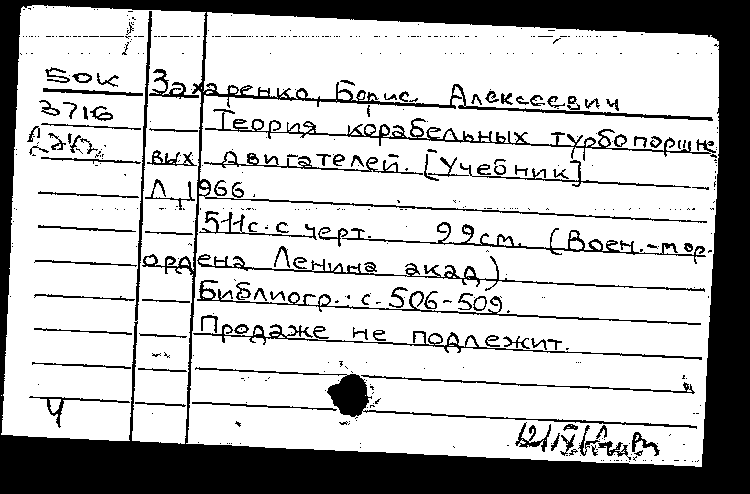 БОК Захаренко, Борис Алексеевич
3716 Теория корабельных турбопоршне
2 экз. вых двигателей. [Учебник]
Л, 1966.
511с. с черт. 22см. (Воен.-мор.
ордена Ленина акад).
Библиогр.: с. 506-509.
Продаже не подлежит.
Ч
12/IX